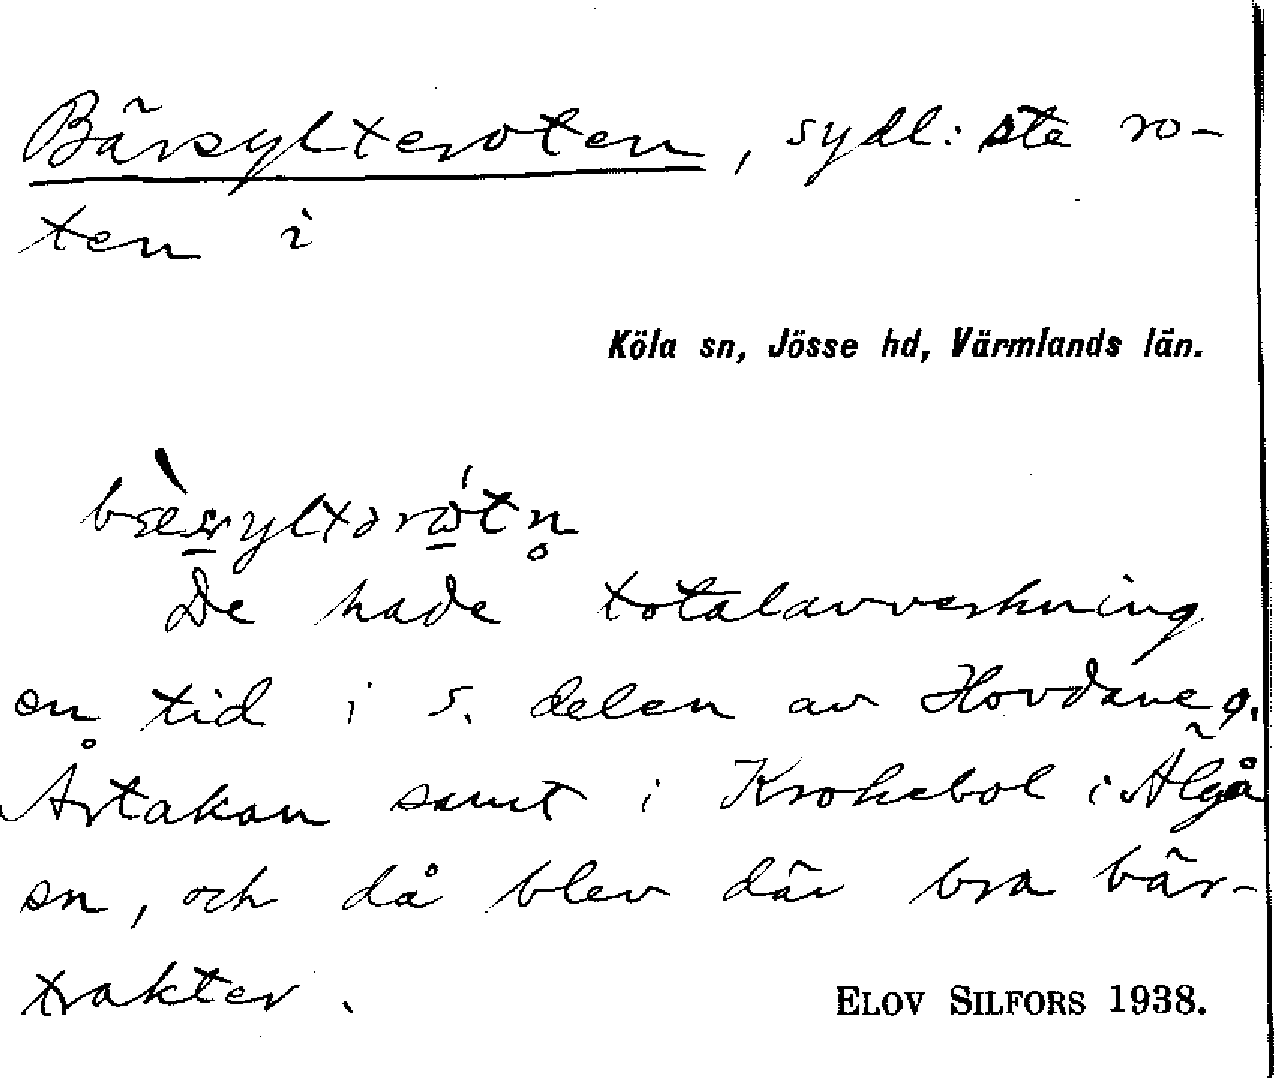 Bärsylteroten, sydl:sta ro-
ten i
Köla sn, Jösse hd, Värmlands län.
De hade totalavverkning
en tid i s. delen av Hovdane o.
Årtakan samt i Krokebol i Älgå
sn, och då blev där bra bär-
trakter.
ELOV SILFORS 1938.